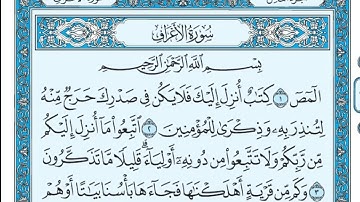 سُورَةُ الأَعْرَافِ
بِسْمِ اللَّهِ الرَّحْمَٰنِ الرَّحِيمِ
الٓمٓصٓ ١ كِتَٰبٌ أُنزِلَ إِلَيْكَ فَلَا يَكُن فِى صَدْرِكَ حَرَجٌ مِّنْهُ
لِتُنذِرَ بِهِۦ وَذِكْرَىٰ لِلْمُؤْمِنِينَ ٢ ٱتَّبِعُوا۟ مَآ أُنزِلَ إِلَيْكُم
مِّن رَّبِّكُمْ وَلَا تَتَّبِعُوا۟ مِن دُونِهِۦٓ أَوْلِيَآءَ ۗ قَلِيلًا مَّا تَذَكَّرُونَ
٣ وَكَم مِّن قَرْيَةٍ أَهْلَكْنَٰهَا فَجَآءَهَا بَأْسُنَا بَيَٰتًا أَوْ هُمْ